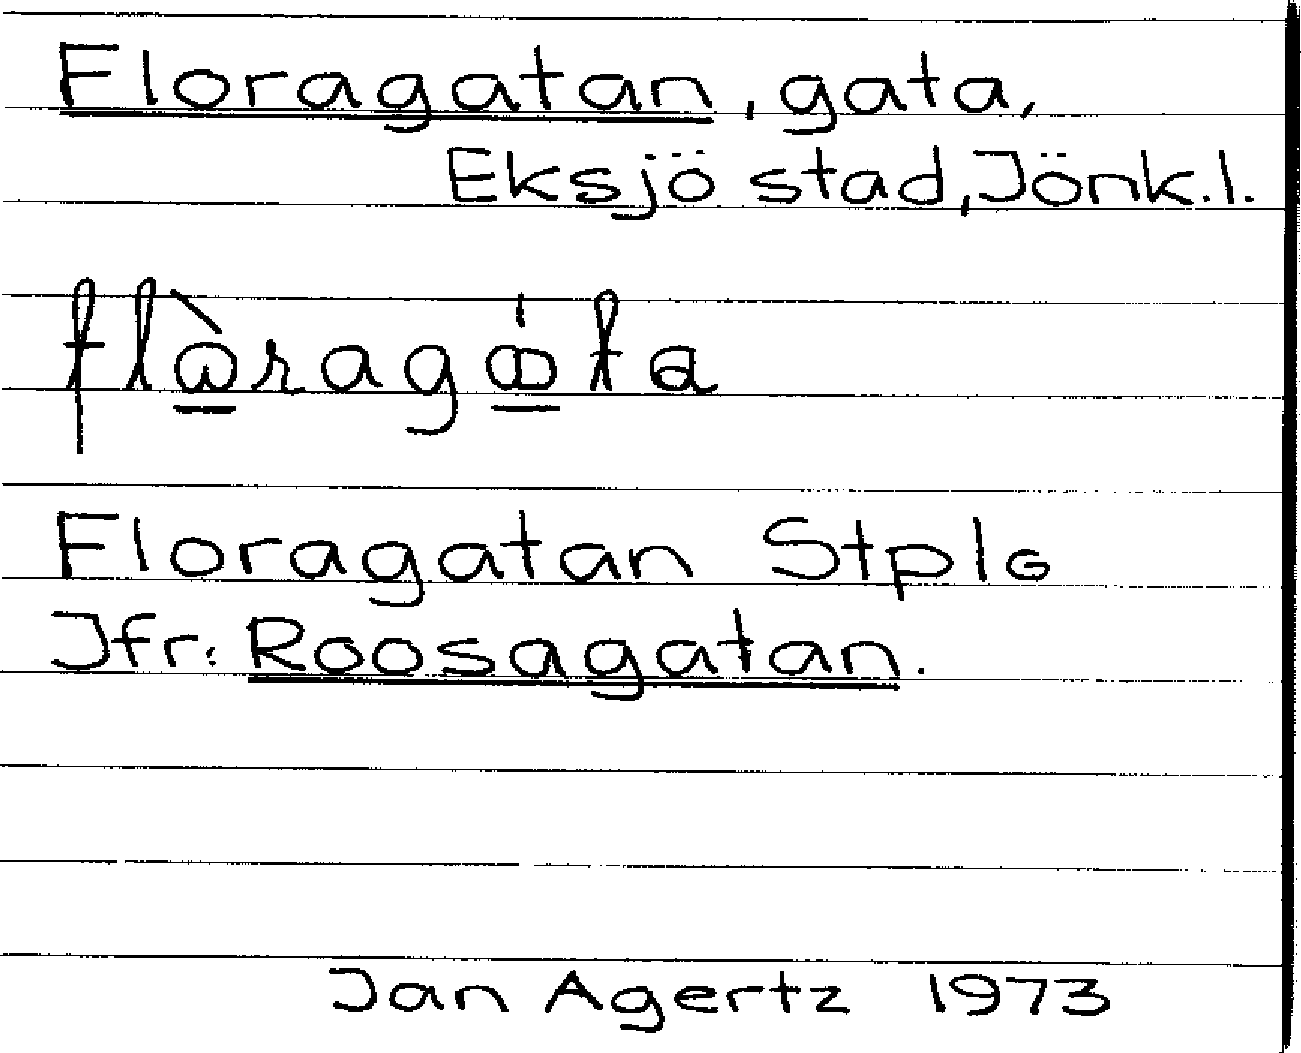 Floragatan, gata,
Eksjö stad, Jönk.l.
Floragatan Stplg
Jfr: Roosagatan.
Jan Agertz 1973